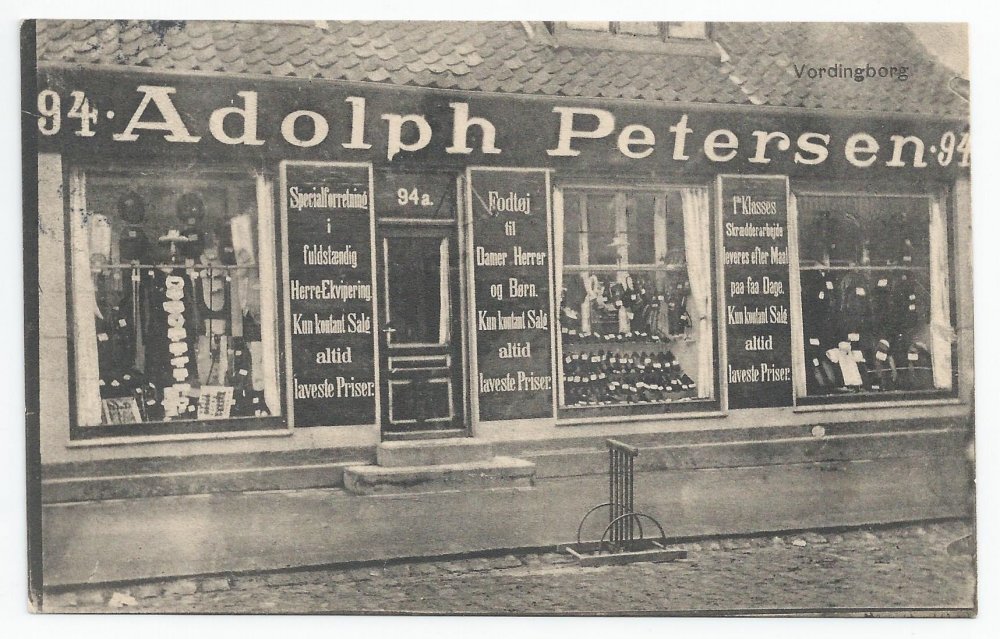 Vordingborg
94. Adolph Petersen. 94
94a.
Specialforretning
i
fuldstændig
Herre-Ekvipering.
Kun kontant Salg
altid
laveste Priser.
Fodtøj
til
Damer, Herrer
og Børn.
Kun kontant Salg
altid
laveste Priser.
1ma Klasses
Skrædderarbejde
leveres efter Maal
paa faa Dage.
Kun kontant Salg
altid
laveste Priser.